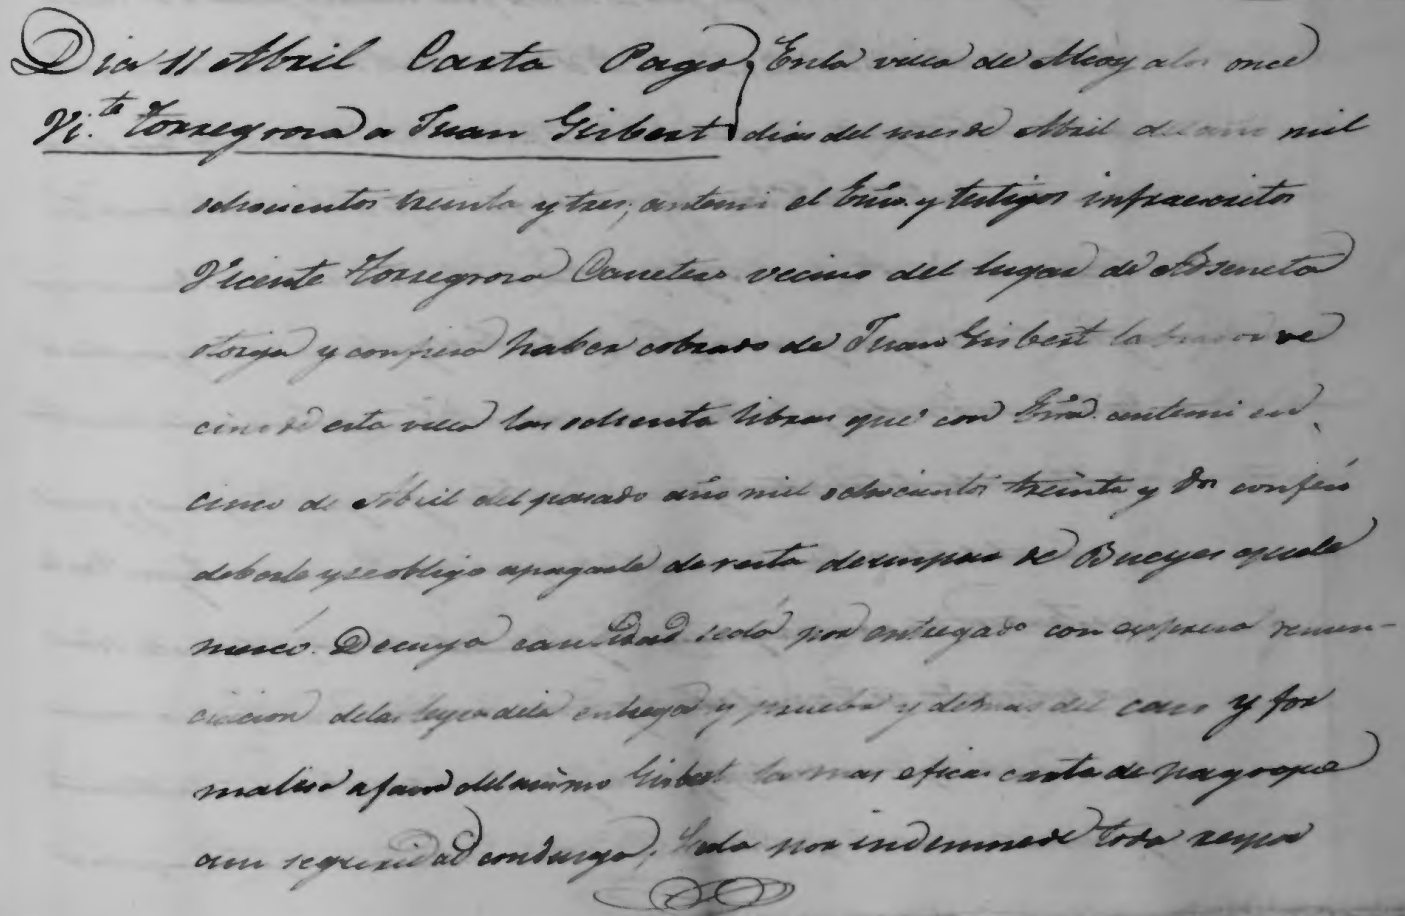 Dia 11 Abril Carta Pago, En la villa de Alcoy a los once
Vi.te Torregrosa a Juan Gisbert dias del mes de Abril del año mil
ochocientos treinta y tres; antemi el Esno. y testigos infraescritos
Vicente Torregrosa Carretero vecino del lugar de Adseneta
otorga y confiesa haber cobrado de Juan Gisbert labrador ve
cino de esta villa las ochenta libras que con Esra. antemi en
cinco de Abril del pasado año mil ochocientos treinta y dos confesó
deberle y se obligo a pagarle de resta de un par de Bueyes que le
mercó. De cuya cantidad se dá por entregado con expresa renun-
ciacion de las leyes de la entrega y prueba y demas del caso y for
maliza a favor del mismo Gisbert la mas eficaz carta de pago que
a su seguridad conduzga, y da por indemne de toda respon